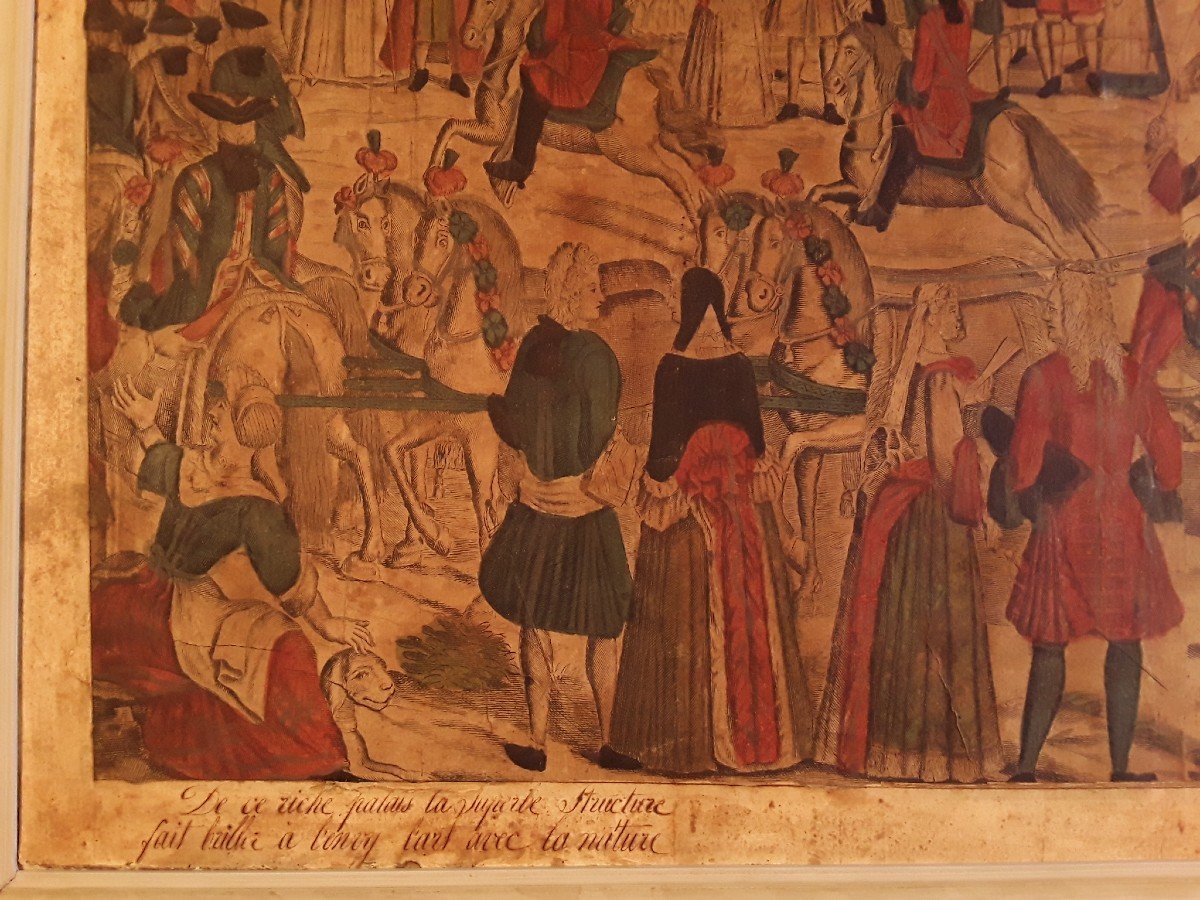 De ce riche palais la superbe Structure
fait briller a l'envy l'art avec la nature